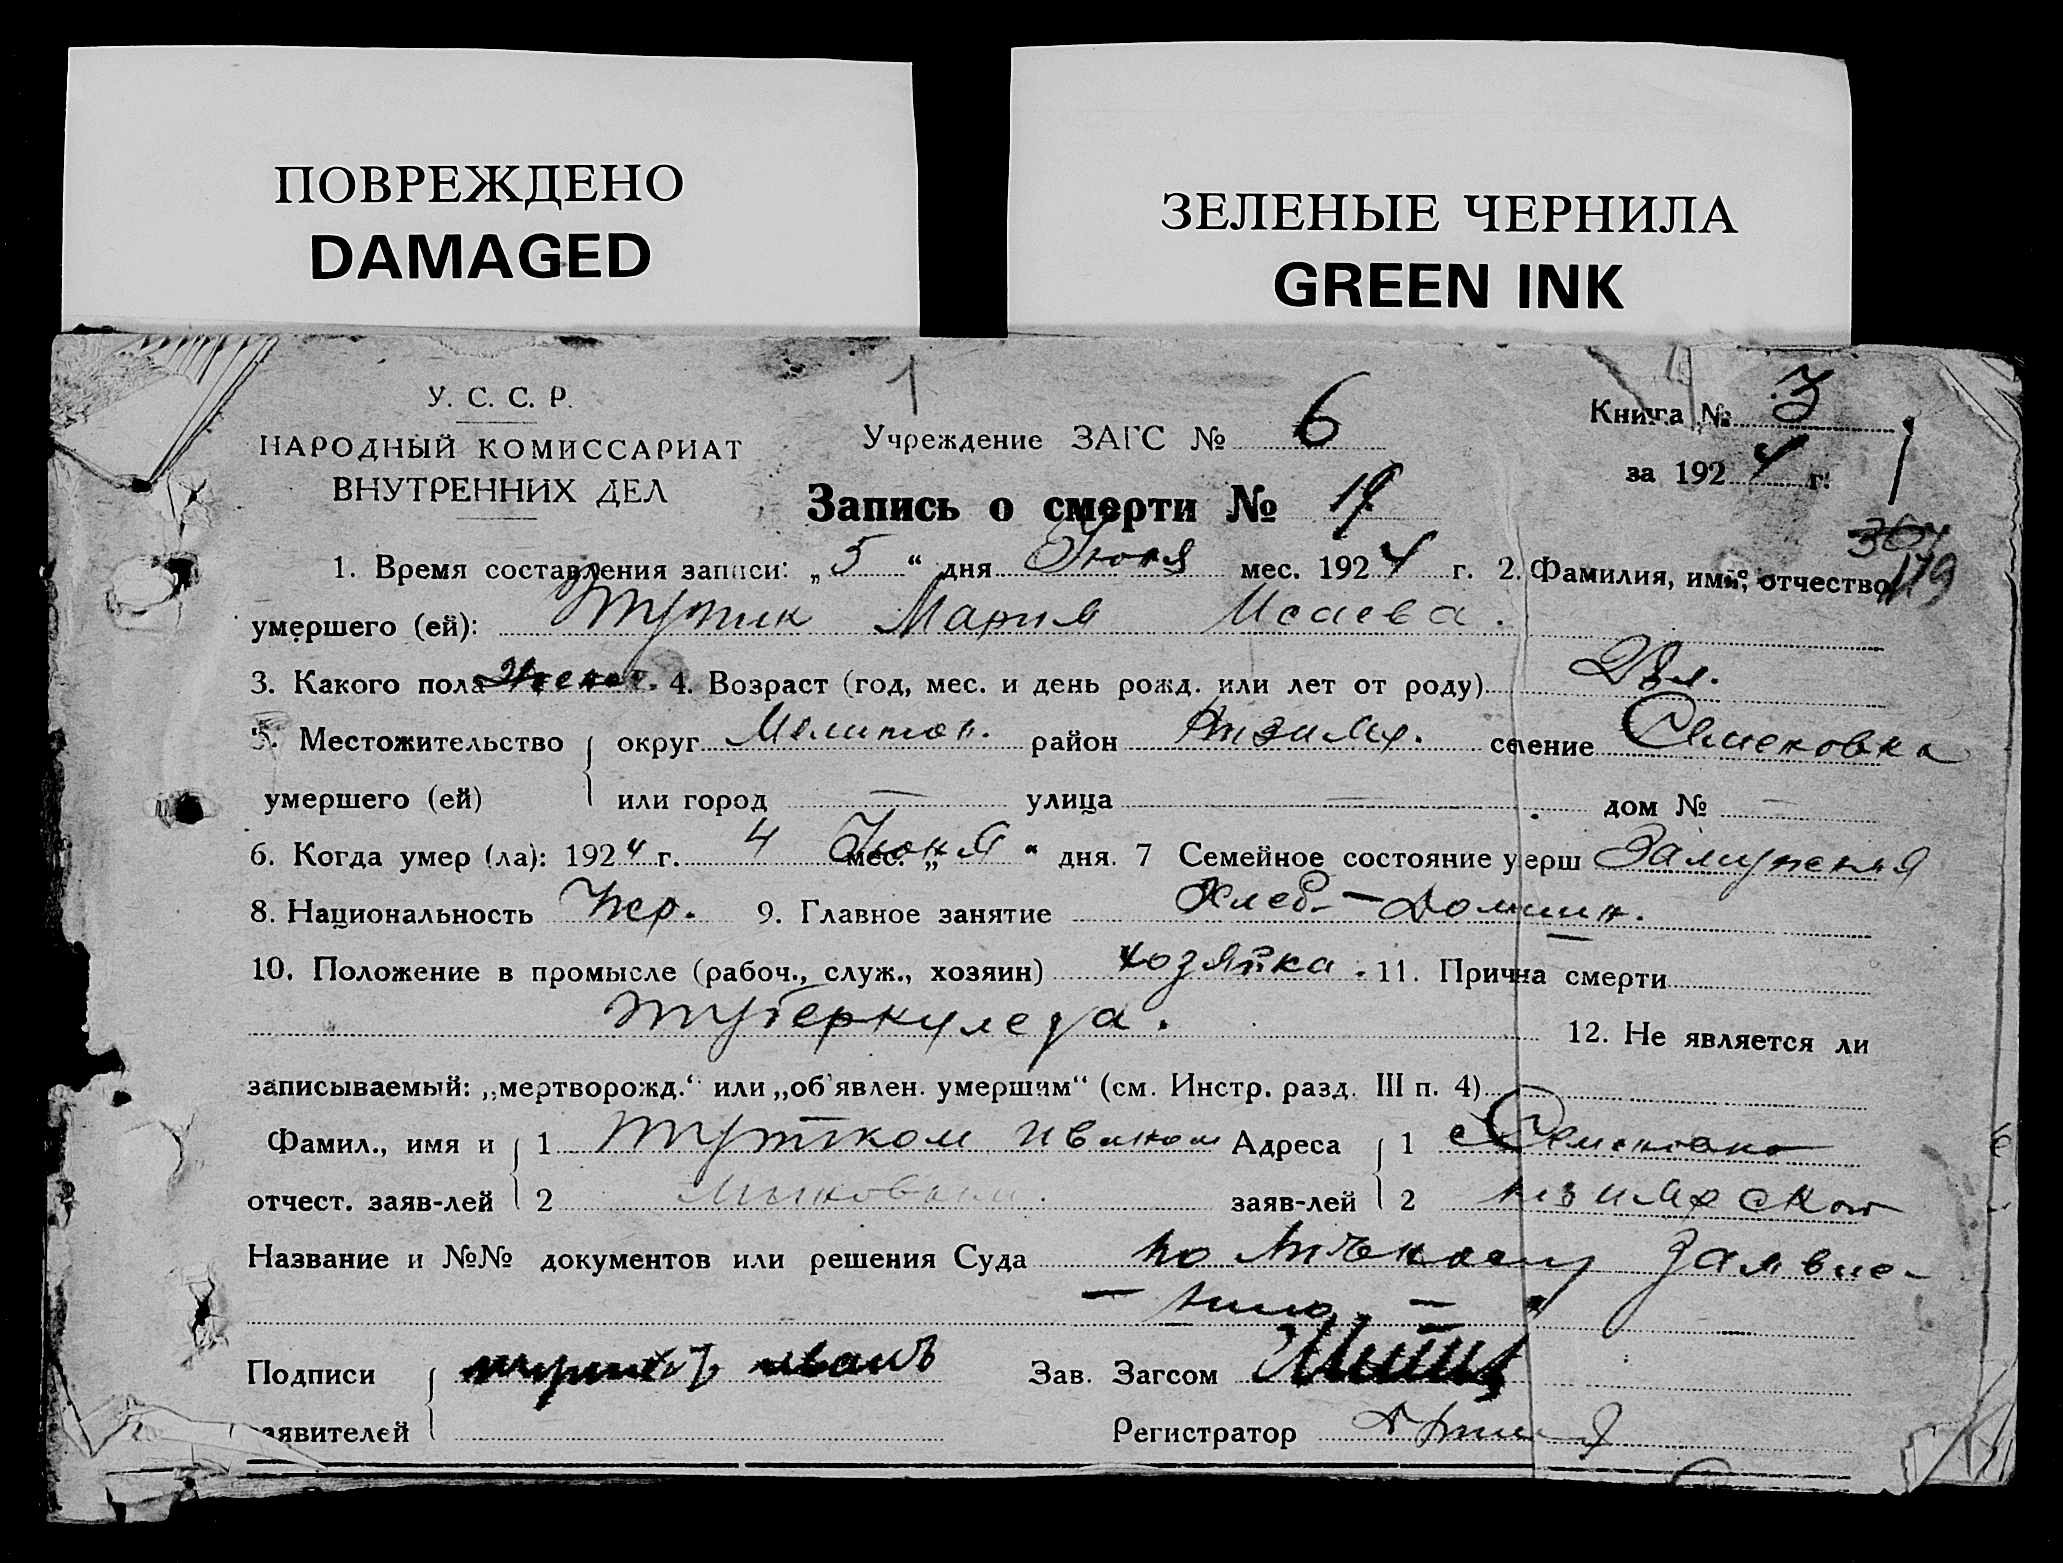 ПОВРЕЖДЕНО
DAMAGED
ЗЕЛЕНЫЕ ЧЕРНИЛА
GREEN INK
1
У. С. С. Р.
НАРОДНЫЙ КОМИССАРИАТ
ВНУТРЕННИХ ДЕЛ
Учреждение ЗАГС № 6
Книга №
за 1924 г.
Запись о смерти № 19.
179
1. Время составления записи: „5“ дня Июня мес. 1924 г. 2. Фамилия, имя, отчество
умершего (ей): Мария Исаева.
3. Какого пола 4. Возраст (год, мес. и день рожд. или лет от роду)
5. Местожительство округ Мелитоп. район селение Семеновка
умершего (ей) или город — улица — дом № —
6. Когда умер (ла): 1924 г. 4 Июня мес. „ “ дня. 7 Семейное состояние умерш Замужняя
8. Национальность 9. Главное занятие Хлеб. —
10. Положение в промысле (рабоч., служ., хозяин) хозяйка. 11. Причина смерти
туберкулеза.
12. Не является ли
записываемый: „мертворожд.“ или „об'явлен. умершим“ (см. Инстр. разд. III п. 4)
Фамил., имя и 1 Иваном Адреса 1 с Семеновка
отчест. заяв-лей 2 заяв-лей 2
Название и №№ документов или решения Суда по заявле-
Подписи иванъ Зав. Загсом
заявителей Регистратор